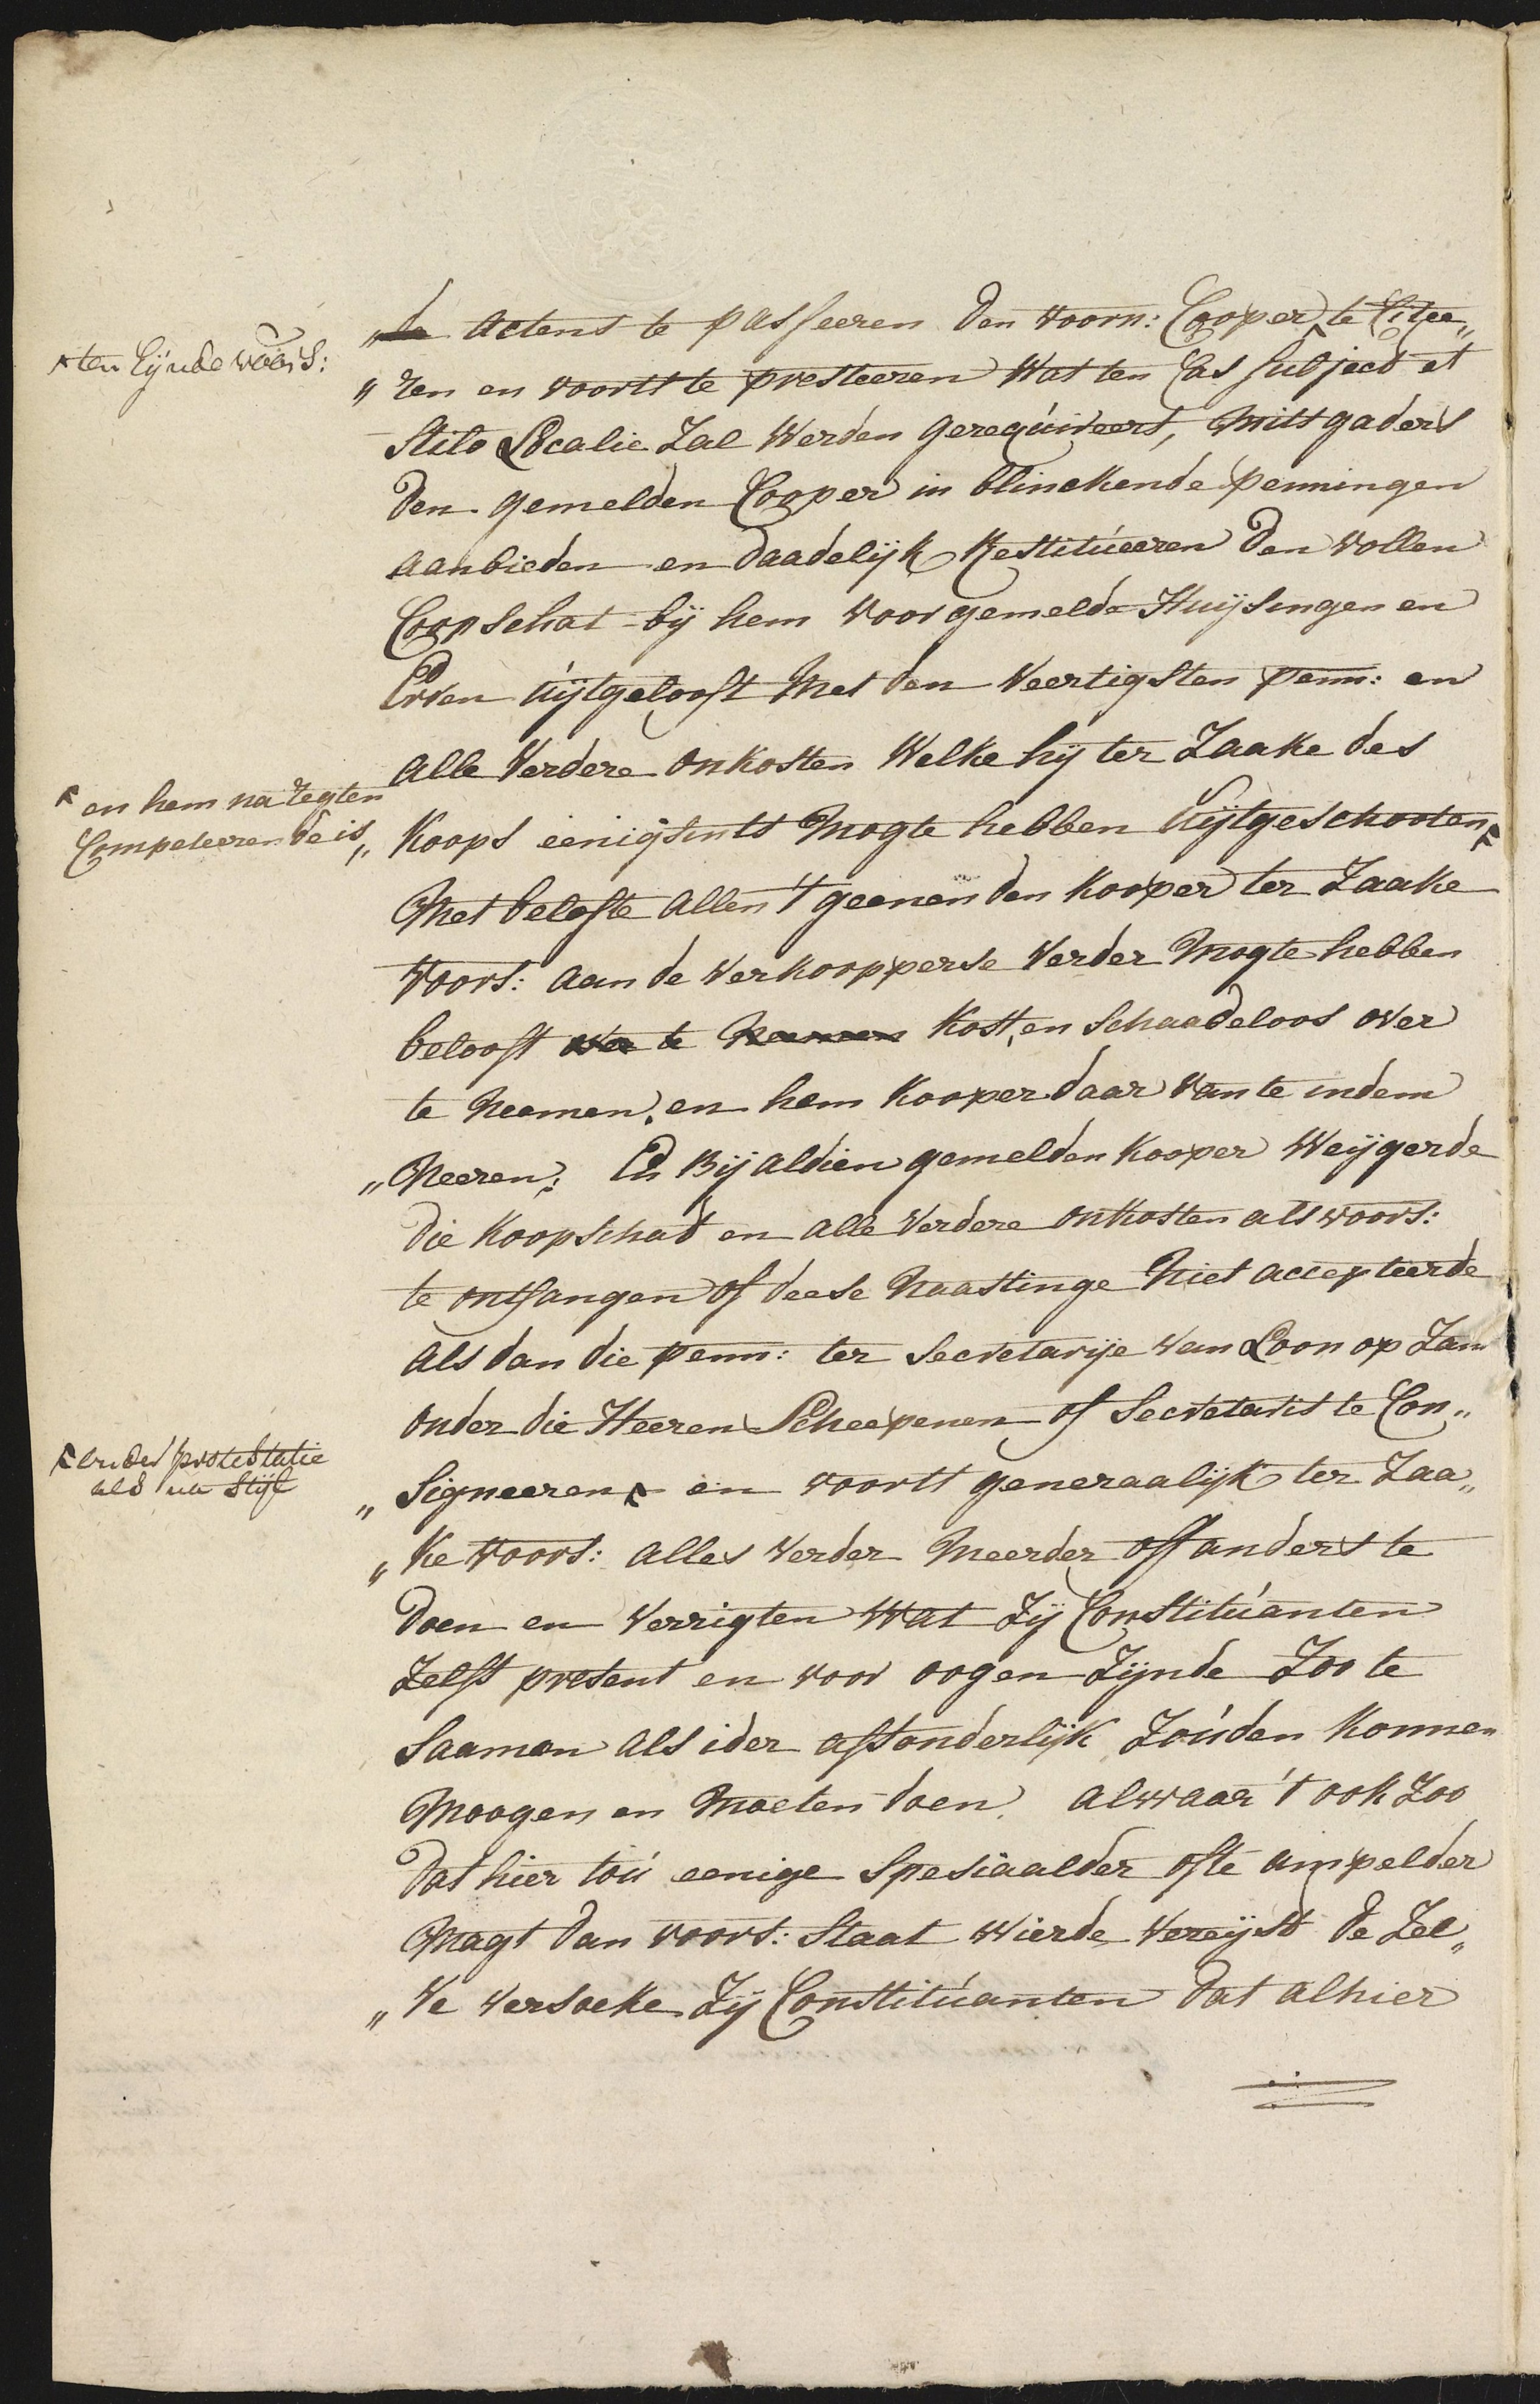 „de actens te passeeren den voorn: Cooper ^ te Citee„
^ ten Eijnde voors:
„ren en voorts te presteeren wat ten Cas subject et
stilo Localie zal werden gerequireert, mitsgaders
den gemelden Cooper in blinckende penningen
aanbieden en daadelijk Restitueeren den vollen
Coopschat bij hem voor gemelde Huijsingen en
Erven uijtgelooft met den veertigsten penn: en
alle verdere onkosten welke hij ter zaake des
^ en hem na regten
Competeerende is„
Koops eenigsints mogte hebben uijtgeschooten ^
met belofte allen 't geenen den kooper ter zaake
voors: aan de verkoopperse verder mogte hebben
belooft te Neemen kost, en schaadeloos over
te neemen, en hem kooper daar van te indem
„neeren; En Bij aldien gemelden kooper weijgerde
die koopschat en alle verdere onkosten als voors:
te ontfangen of deese Naastinge niet accepteerde
als dan die penn: ter Secretarije van Loon op Zan
onder die Heeren Scheepenen of Secretaris te Con„
^ onder protestatie
als na stijl
„signeeren ^ en voorts generaalijk ter zaa„
„ke voors: alles verder meerder off anders te
doen en verrigten wat zij Constituanten
zelfs present en voor oogen zijnde zoo te
saamen als ider afsonderlijk zouden konnen
moogen en moeten doen. alwaar 't ook zoo
dat hier tou eenige spesiaalder ofte ampelder
magt dan voors: staat wierde vereijst de zel„
„ve versoeke zij Constituanten dat alhier